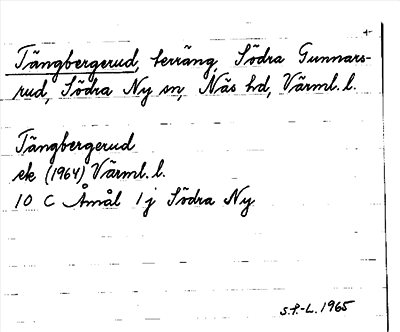 Tängbergerud, terräng, Södra Gunnars-
rud, Södra Ny sn, Näs hd, Värml. l.
Tängbergerud
ek (1964) Värml. l.
10 C Åmål 1 j Södra Ny
S.F.-L. 1965